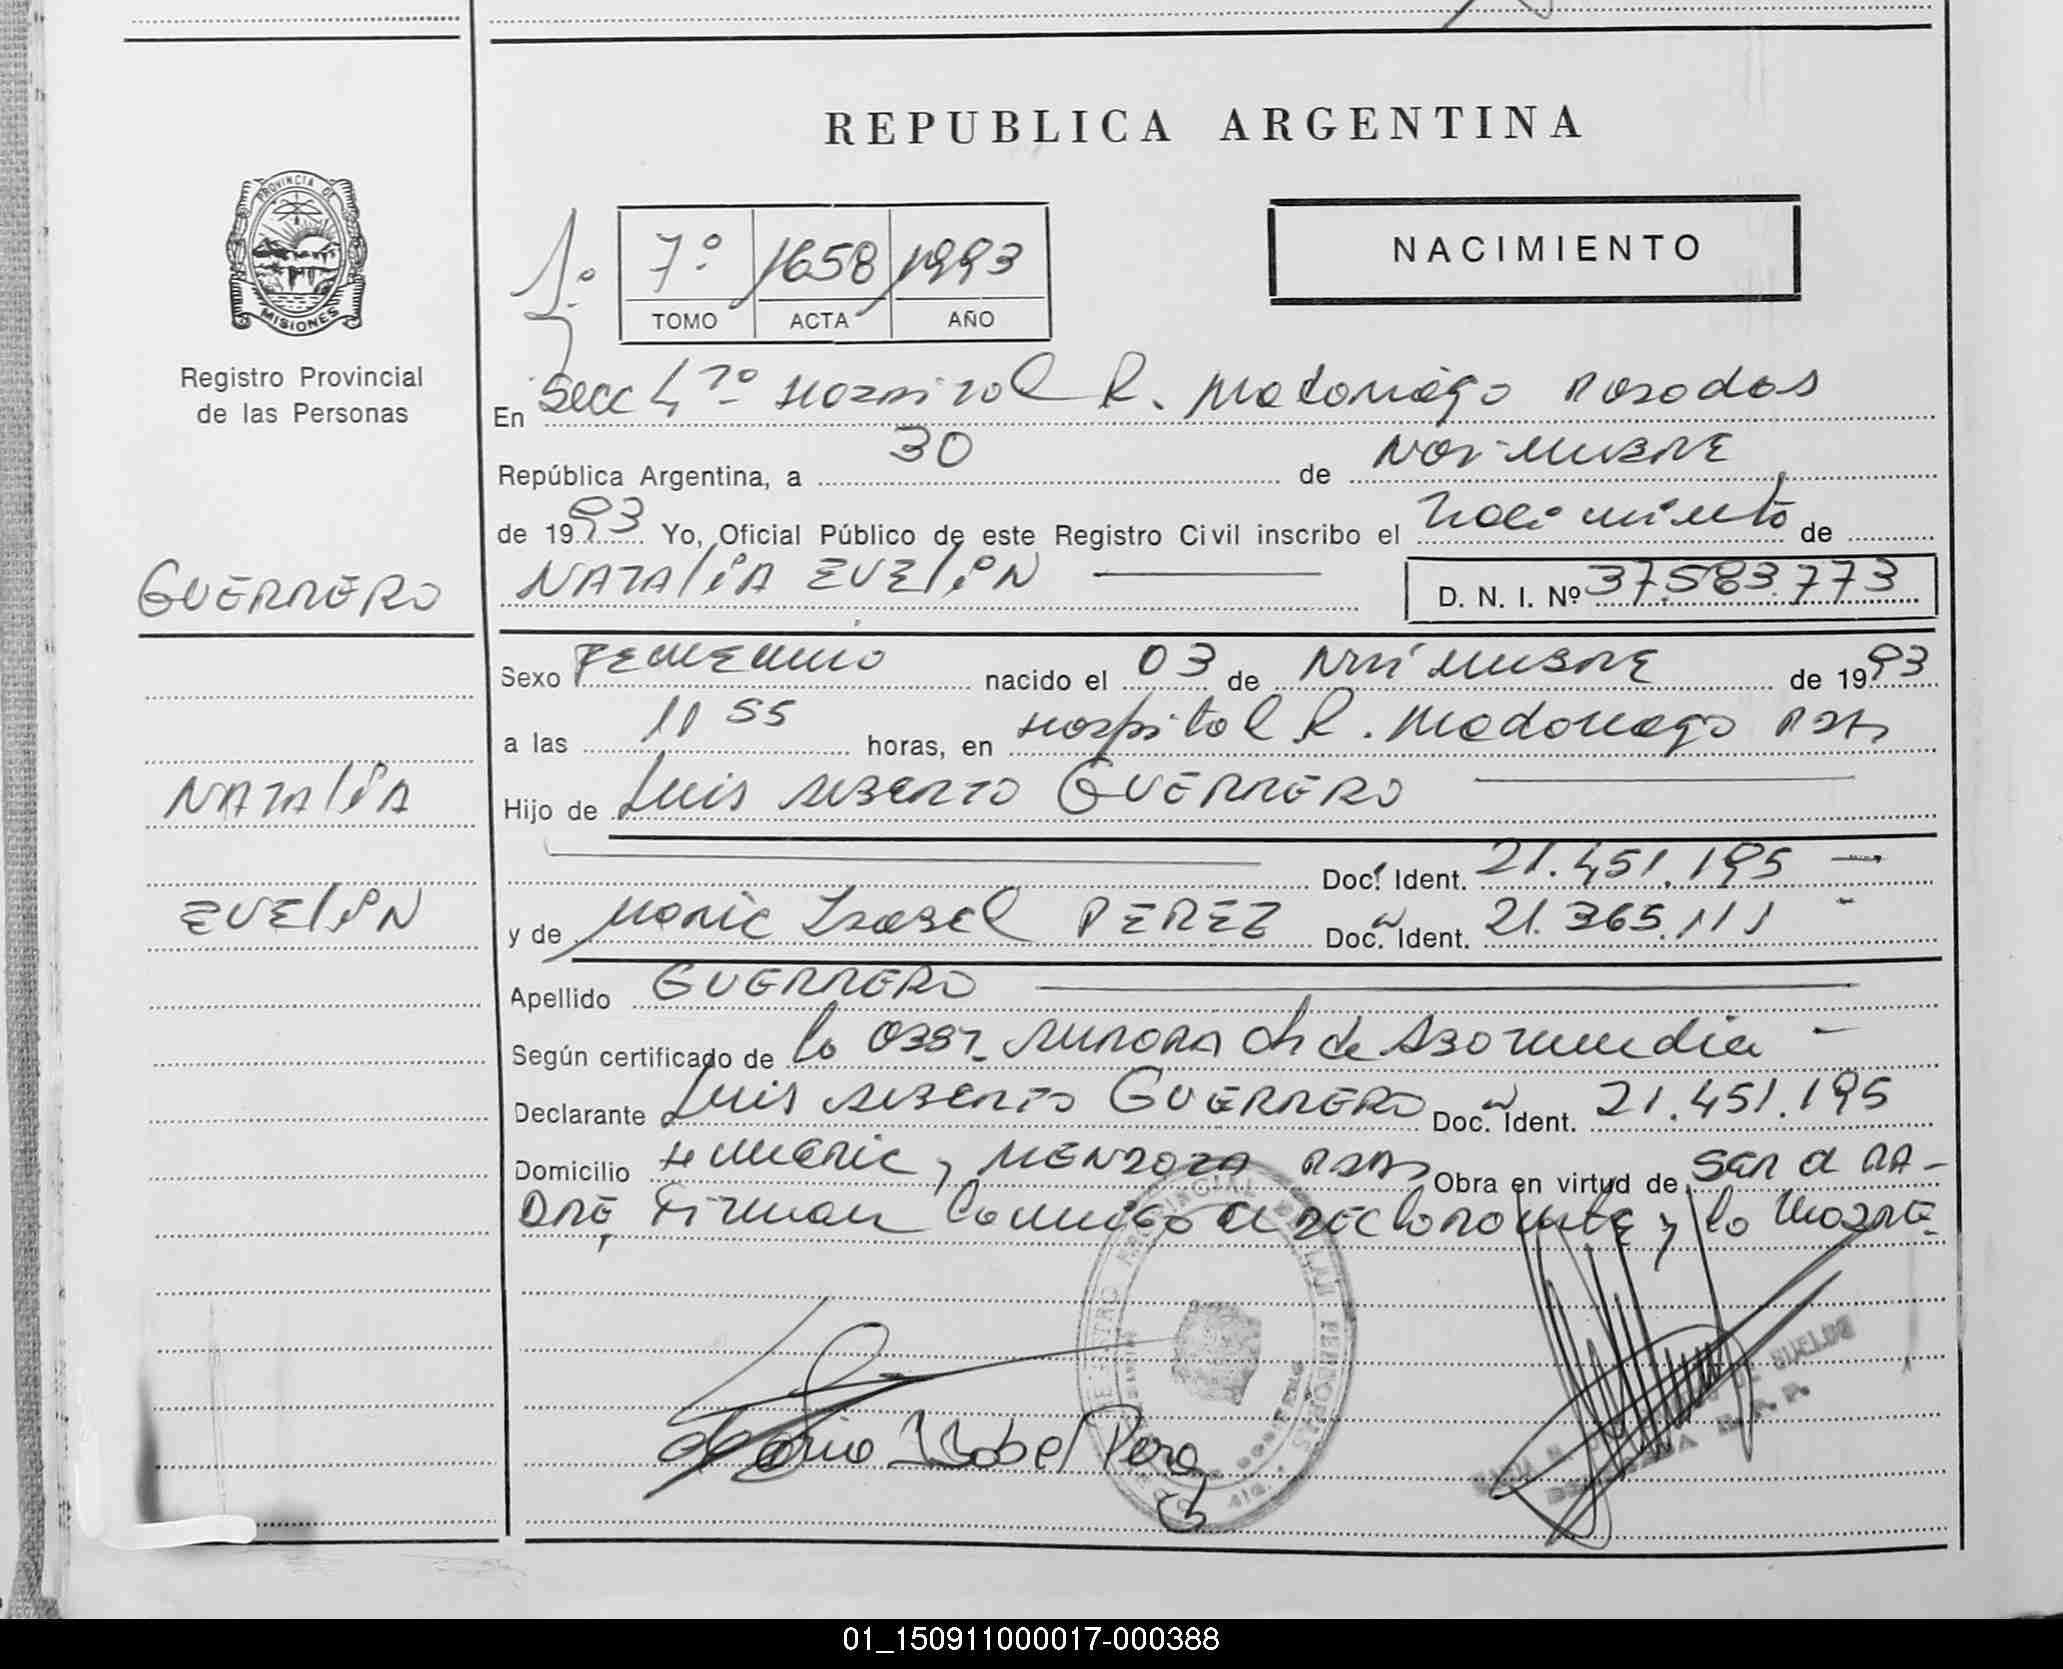 REPUBLICA ARGENTINA
PROVINCIA DE
MISIONES
Registro Provincial
de las Personas
NACIMIENTO
1º
7º 1658 1993
TOMO ACTA AÑO
En Secc 4ta Hospital R. Madariaga Posadas
República Argentina, a 30 de NOViEMBRE
de 1993 Yo, Oficial Público de este Registro Civil inscribo el Nacimiento de
GUERRERO
NATALiA EVELiN
D. N. I. Nº 37.583.773
Sexo FEMENINO nacido el 03 de NOViEMBRE de 1993
a las 11 55 horas, en Hospital R. Madariaga Pdas
NATALiA
Hijo de Luis ALBERTO GUERRERO
Doc. Ident. 21.451.195
EVELiN
y de Maria Isabel PEREZ Doc. Ident. 21.365.111
Apellido GUERRERO
Según certificado de la OBST. AURORA CH de
Declarante Luis ALBERTO GUERRERO Doc. Ident. 21.451.195
Domicilio MENDOZA Pdas Obra en virtud de SER el PA-
DRE, Firman Conmigo el DEClarante y la MADRE.
REGISTRO PROVINCIAL DE LAS PERSONAS
Maria Isabel Perez
01_150911000017-000388